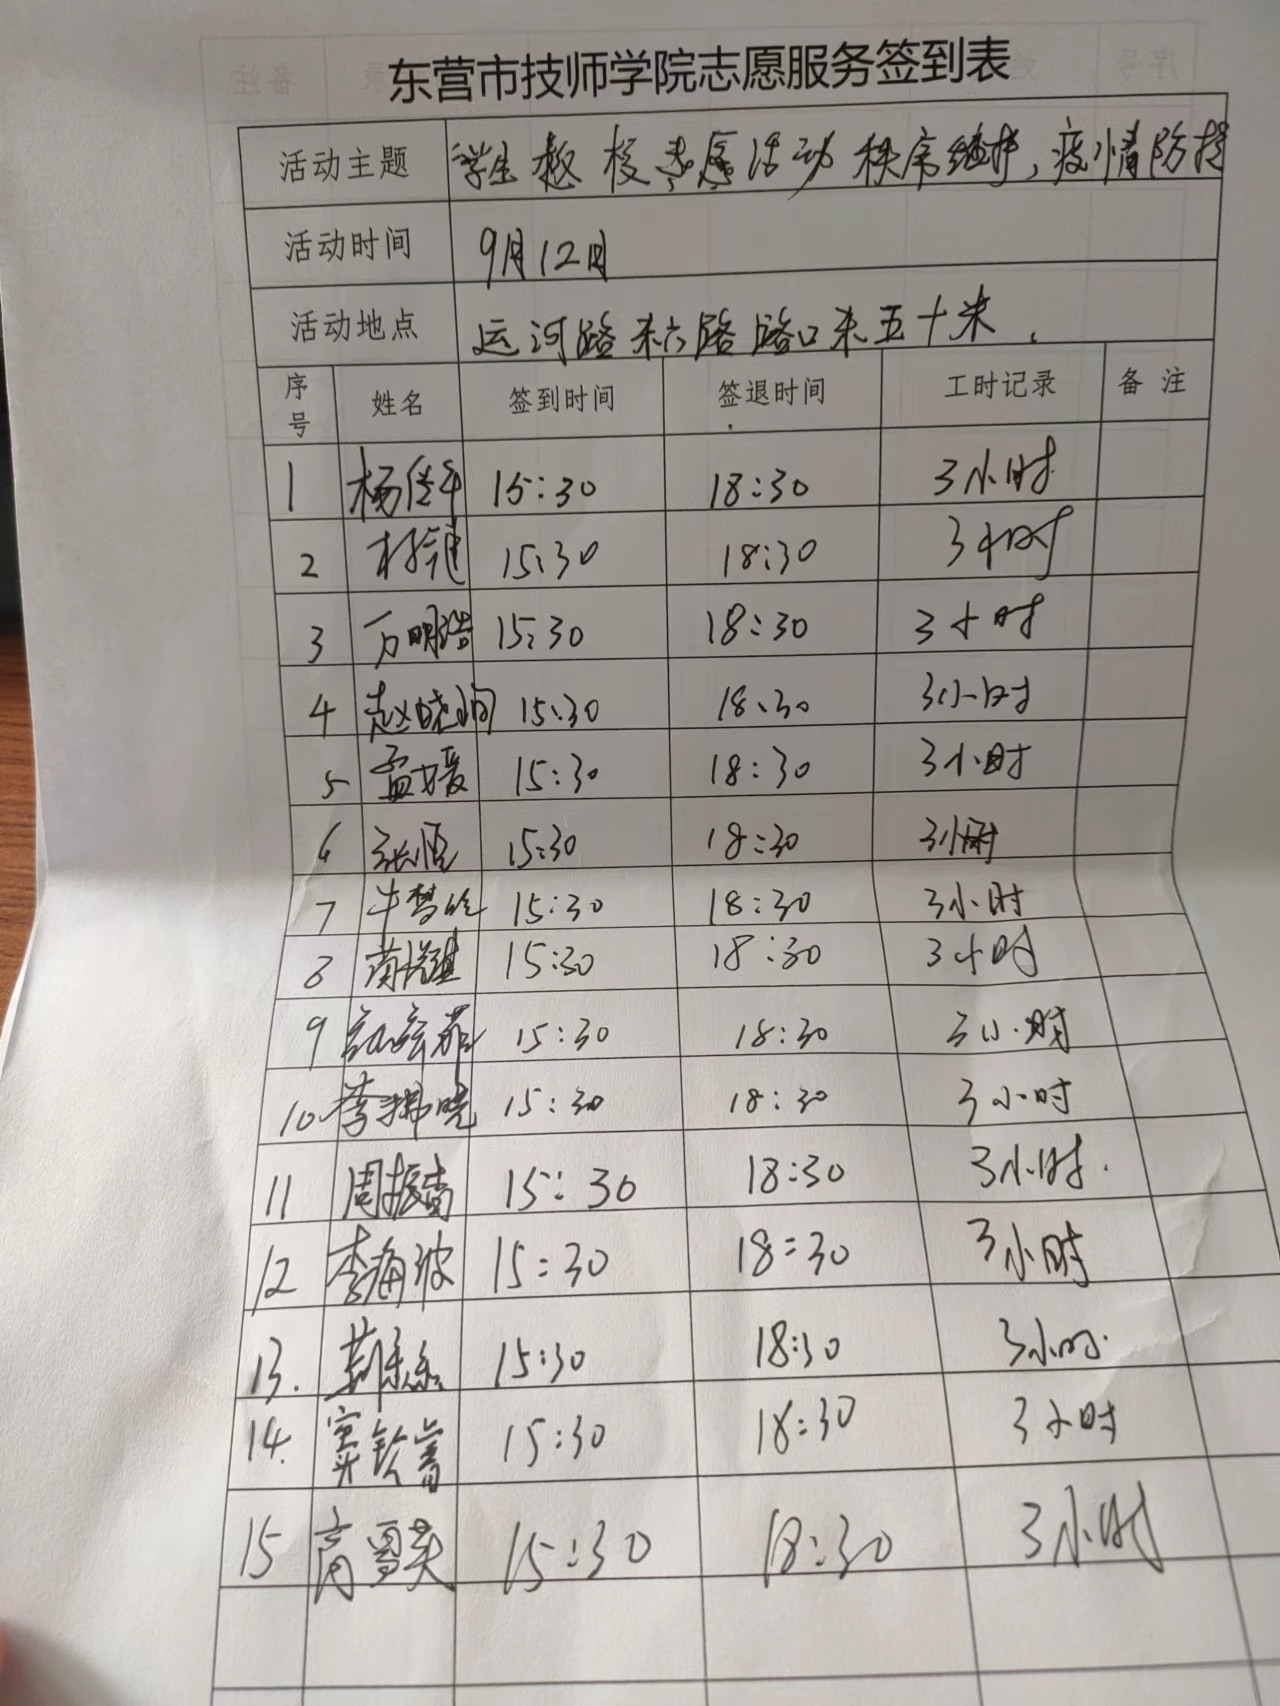 东营市技师学院志愿服务签到表
活动主题 学生返校志愿活动 秩序维护,疫情防控
活动时间 9月12日
活动地点 运河路 路路口东五十米.
序号 姓名 签到时间 签退时间 工时记录 备注
1 杨 15:30 18:30 3小时
2 15:30 18:30 3小时
3 万明浩 15:30 18:30 3小时
4 赵晓 15:30 18:30 3小时
5 孟媛 15:30 18:30 3小时
6 张恒 15:30 18:30 3小时
7 牛梦 15:30 18:30 3小时
8 15:30 18:30 3小时
9 15:30 18:30 3小时
10 李拂晓 15:30 18:30 3小时
11 周振 15:30 18:30 3小时
12 李海波 15:30 18:30 3小时.
13. 15:30 18:30 3小时.
14. 窦 15:30 18:30 3小时
15 高雪英 15:30 18:30 3小时